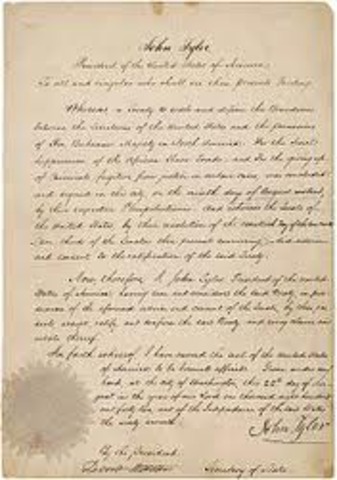 John Tyler
President of the United States of America,
To all and singular who shall see these Presents Greeting
Whereas a Treaty to settle and define the Boundaries
between the Territories of the United States and the possessions
of Her Britannic Majesty in North America: For the final
Suppression of the African Slave Trade: and For the giving up
of Criminals fugitive from justice in certain cases, was concluded
and signed in this city, on the ninth day of August instant,
by their respective Plenipotentiaries. And whereas the Senate of
the United States, by their resolution of the day of
two thirds of the Senators then present concurring, did advise
and consent to the ratification of the said Treaty.
Now therefore, I John Tyler, President of the United
States of America, having seen and considered the said Treaty, in
of the aforesaid advice and consent of the Senate, by these
accept, ratify, and confirm the said Treaty and every clause and
article thereof.
In faith whereof, I have caused the seal of the United States
of America to be hereunto affixed. Given under my
hand, at the City of Washington, this 22d day of
in the year of our Lord one thousand eight hundred
and forty two, and of the Independence of the United States
the sixty seventh.
John Tyler
By the President:
Secretary of State